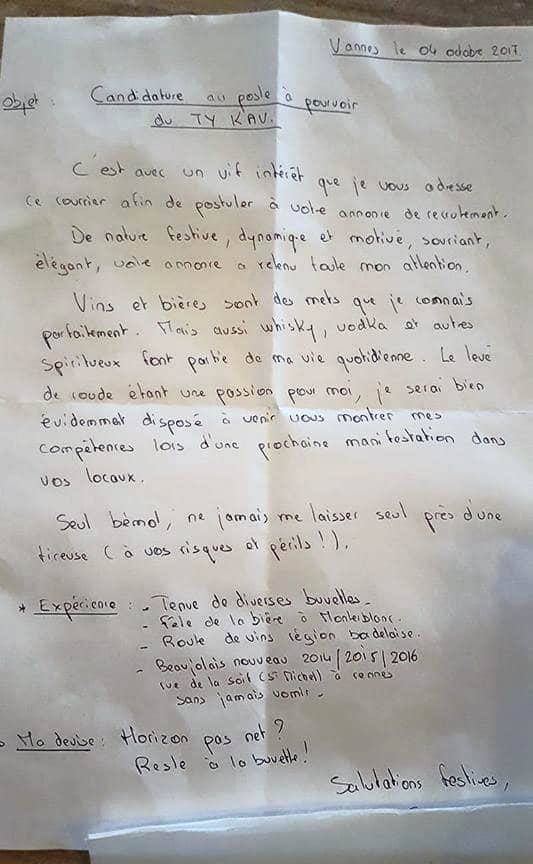 Vannes le 04 octobre 2017
Objet : Candidature au poste à pourvoir
du TY KAV.
C'est avec un vif intérêt que je vous adresse
ce courrier afin de postuler à votre annonce de recrutement.
De nature festive, dynamique et motivé, souriant,
élégant, votre annonce a retenu toute mon attention.
Vins et bières sont des mets que je connais
parfaitement. Mais aussi whisky, vodka et autres
spiritueux font partie de ma vie quotidienne. Le levé
de coude étant une passion pour moi, je serai bien
évidemmat disposé à venir vous montrer mes
compétences lors d'une prochaine manifestation dans
vos locaux.
Seul bémol, ne jamais me laisser seul près d'une
tireuse (à vos risques et périls !).
* Expérience : - Tenue de diverses buvettes -
- Fête de la bière à Monterblanc.
- Route de vins région bodelaise.
- Beaujolais nouveau 2014/2015/2016
rue de la soif (St Michel) à rennes
sans jamais vomir -
Ma devise : Horizon pas net ?
Reste à la buvette !
Salutations festives,